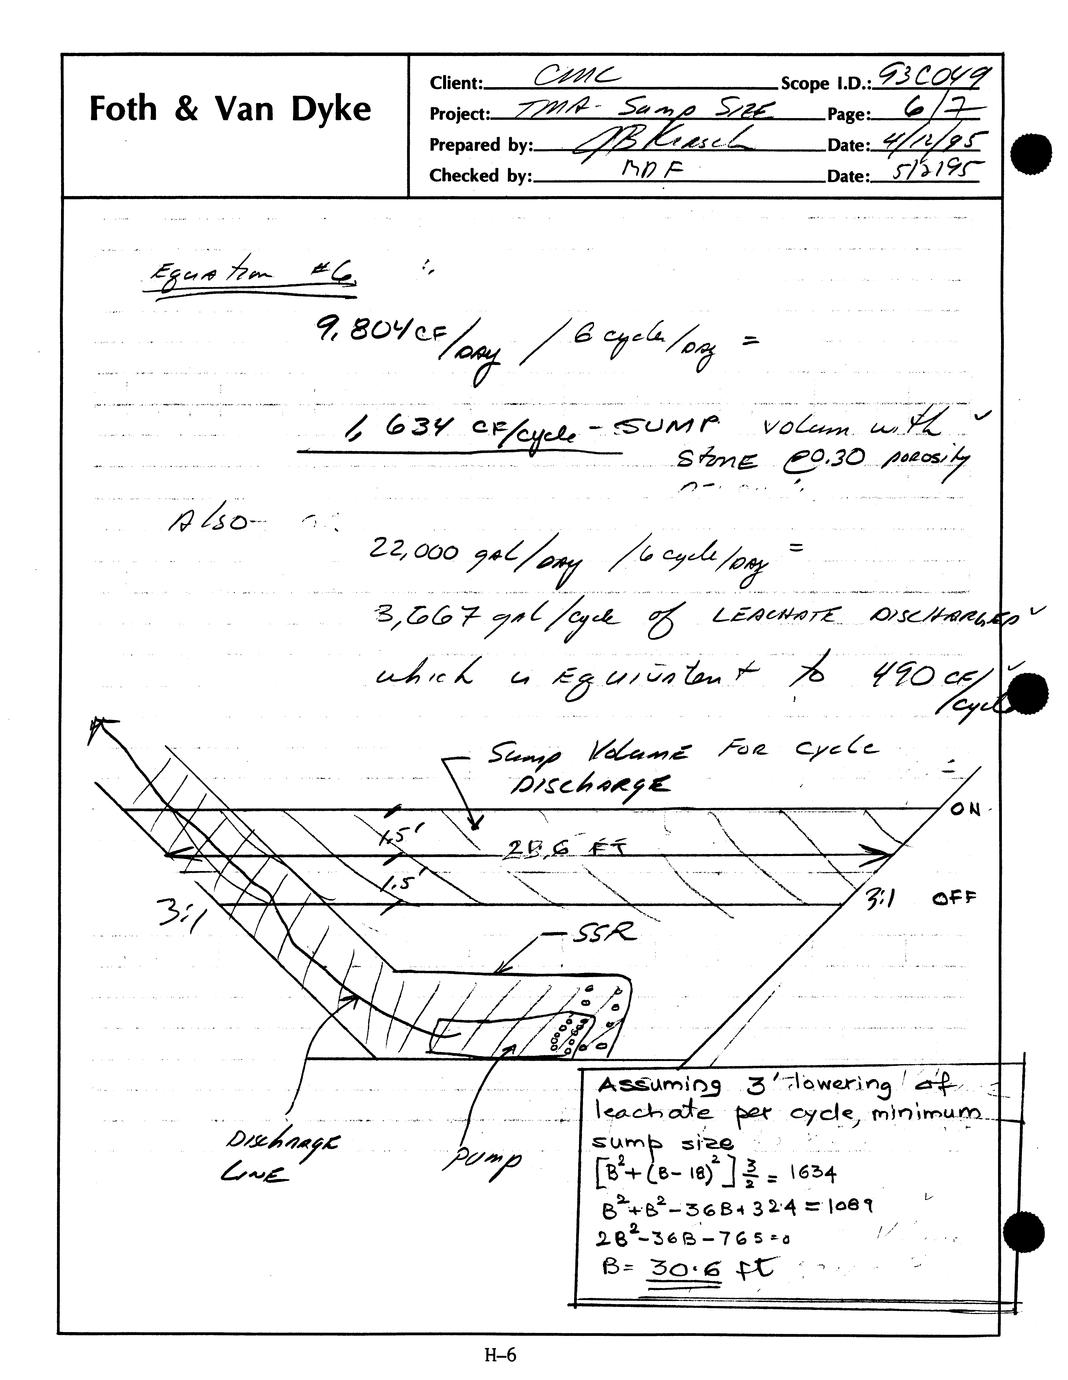 Foth & Van Dyke
Client: CMC Scope I.D.: 93C049
Project: TMA- Sump SIZE Page: 6/7
Prepared by: JB Kirsch Date: 4/12/95
Checked by: MDF Date: 5/2/95
Equation #6
9,804 CF/DAY / 6 cycle/DAY =
1,634 CF/cycle - SUMP volum with
STONE @0.30 porosity
Also-
22,000 gal/DAY / 6 cycle/DAY =
3,667 gal/cycle of LEACHATE DISCHARGED
which is Equivalent to 490 CF/
/cycle
Sump Volume For cycle
DISCHARGE
ON
1.5'
28.6 FT
1.5'
3:1
3:1
OFF
SSR
DISCHARGE
LINE
Pump
Assuming 3' lowering of
leachate per cycle, minimum
sump size
[B²+(B-18)²] 3/2 = 1634
B²+B²-36B+324=1089
2B²-36B-765=0
B= 30.6 ft
H-6